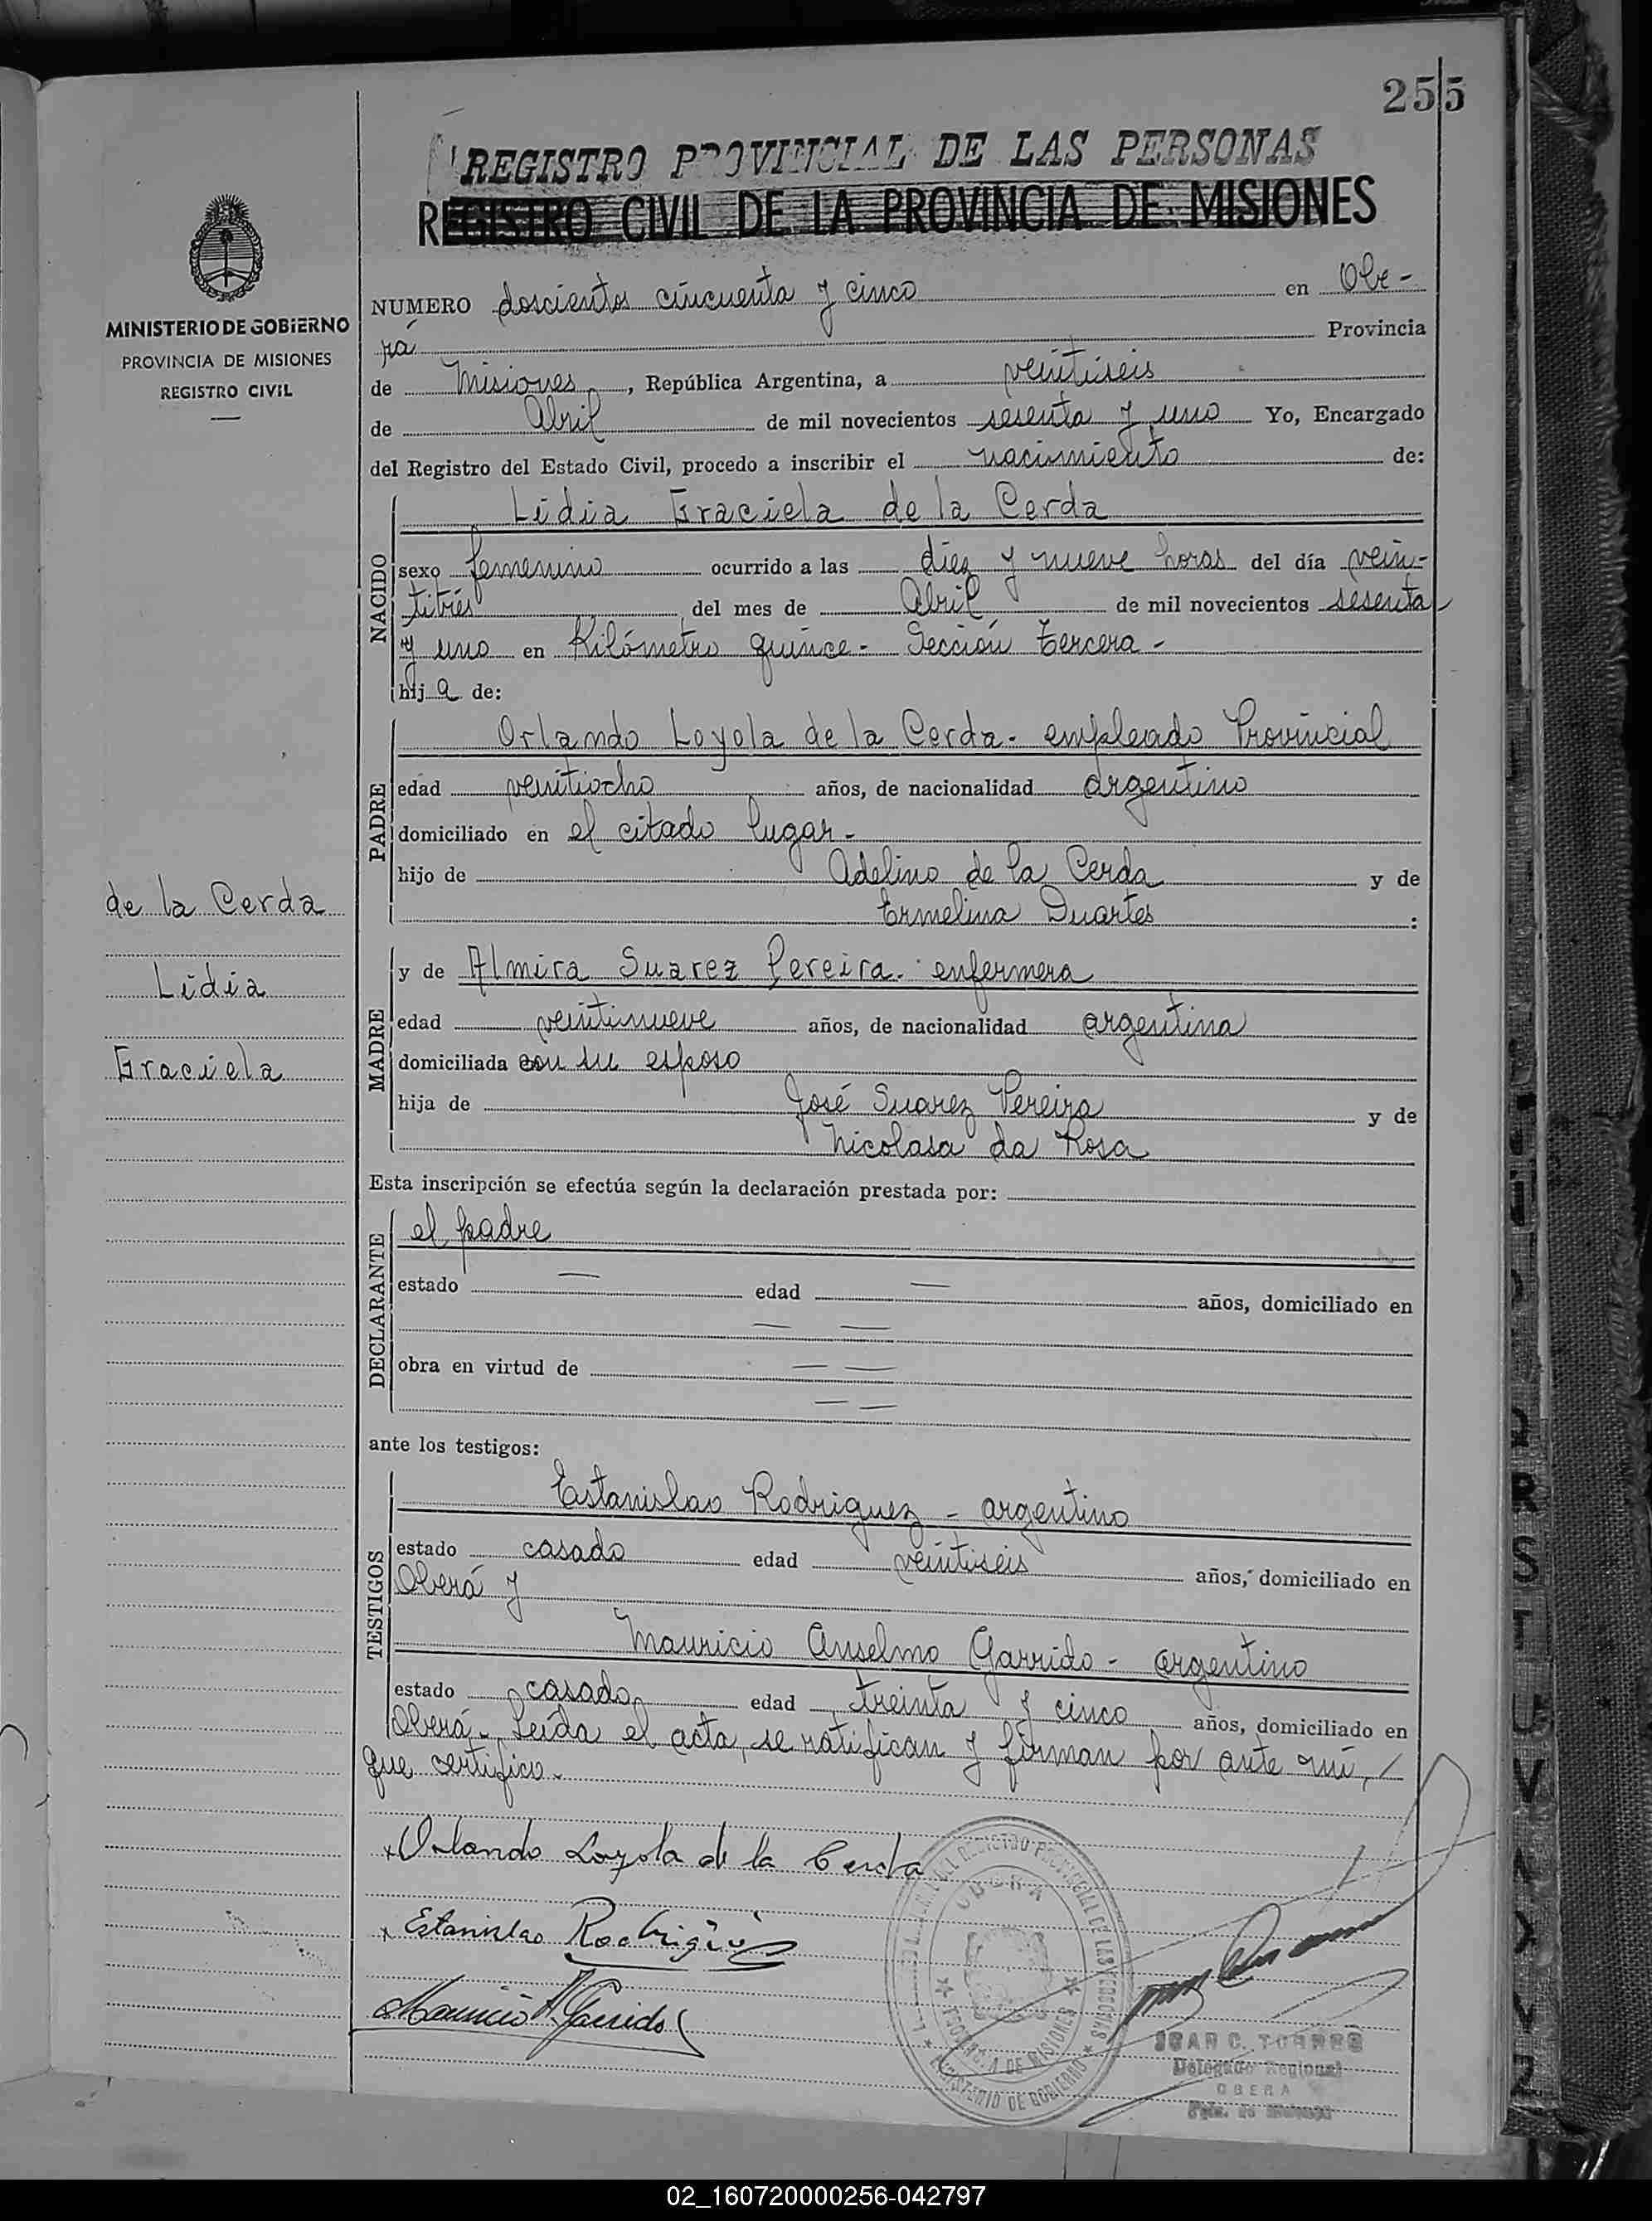 255
REGISTRO PROVINCIAL DE LAS PERSONAS
REGISTRO CIVIL DE LA PROVINCIA DE MISIONES
MINISTERIO DE GOBIERNO
PROVINCIA DE MISIONES
REGISTRO CIVIL
NUMERO doscientos cincuenta y cinco en Obe-
rá Provincia
de Misiones, República Argentina, a veintiseis
de Abril de mil novecientos sesenta y uno Yo, Encargado
del Registro del Estado Civil, procedo a inscribir el nacimiento de:
NACIDO
Lidia Graciela de la Cerda
sexo femenino ocurrido a las diez y nueve horas del día vein-
titrés del mes de Abril de mil novecientos sesenta
y uno en Kilómetro quince - Sección tercera -
hija de:
PADRE
Orlando Loyola de la Cerda - empleado Provincial
edad veintiocho años, de nacionalidad argentino
domiciliado en el citado lugar -
hijo de Adelino de la Cerda y de
Ermelina Duartes :
de la Cerda
Lidia
Graciela
MADRE
y de Almira Suarez Pereira - enfermera
edad veintinueve años, de nacionalidad argentina
domiciliada con su esposo
hija de José Suarez Pereira y de
Nicolasa da Rosa
Esta inscripción se efectúa según la declaración prestada por:
DECLARANTE
el padre
estado — edad — años, domiciliado en
— —
obra en virtud de — —
— —
ante los testigos:
TESTIGOS
Estanislao Rodriguez - argentino
estado casado edad veintiseis años, domiciliado en
Oberá y
Mauricio Anselmo Garrido - argentino
estado casado edad treinta y cinco años, domiciliado en
Oberá - Leída el acta, se ratifican y firman por ante mí,
que certifico.
x Orlando Loyola de la Cerda
x Estanislao Rodriguez
Mauricio A. Garrido
OBERA
PROVINCIA DE MISIONES
MINISTERIO DE GOBIERNO
JUAN C. TORRES
Delegado Regional
OBERA
02_160720000256-042797